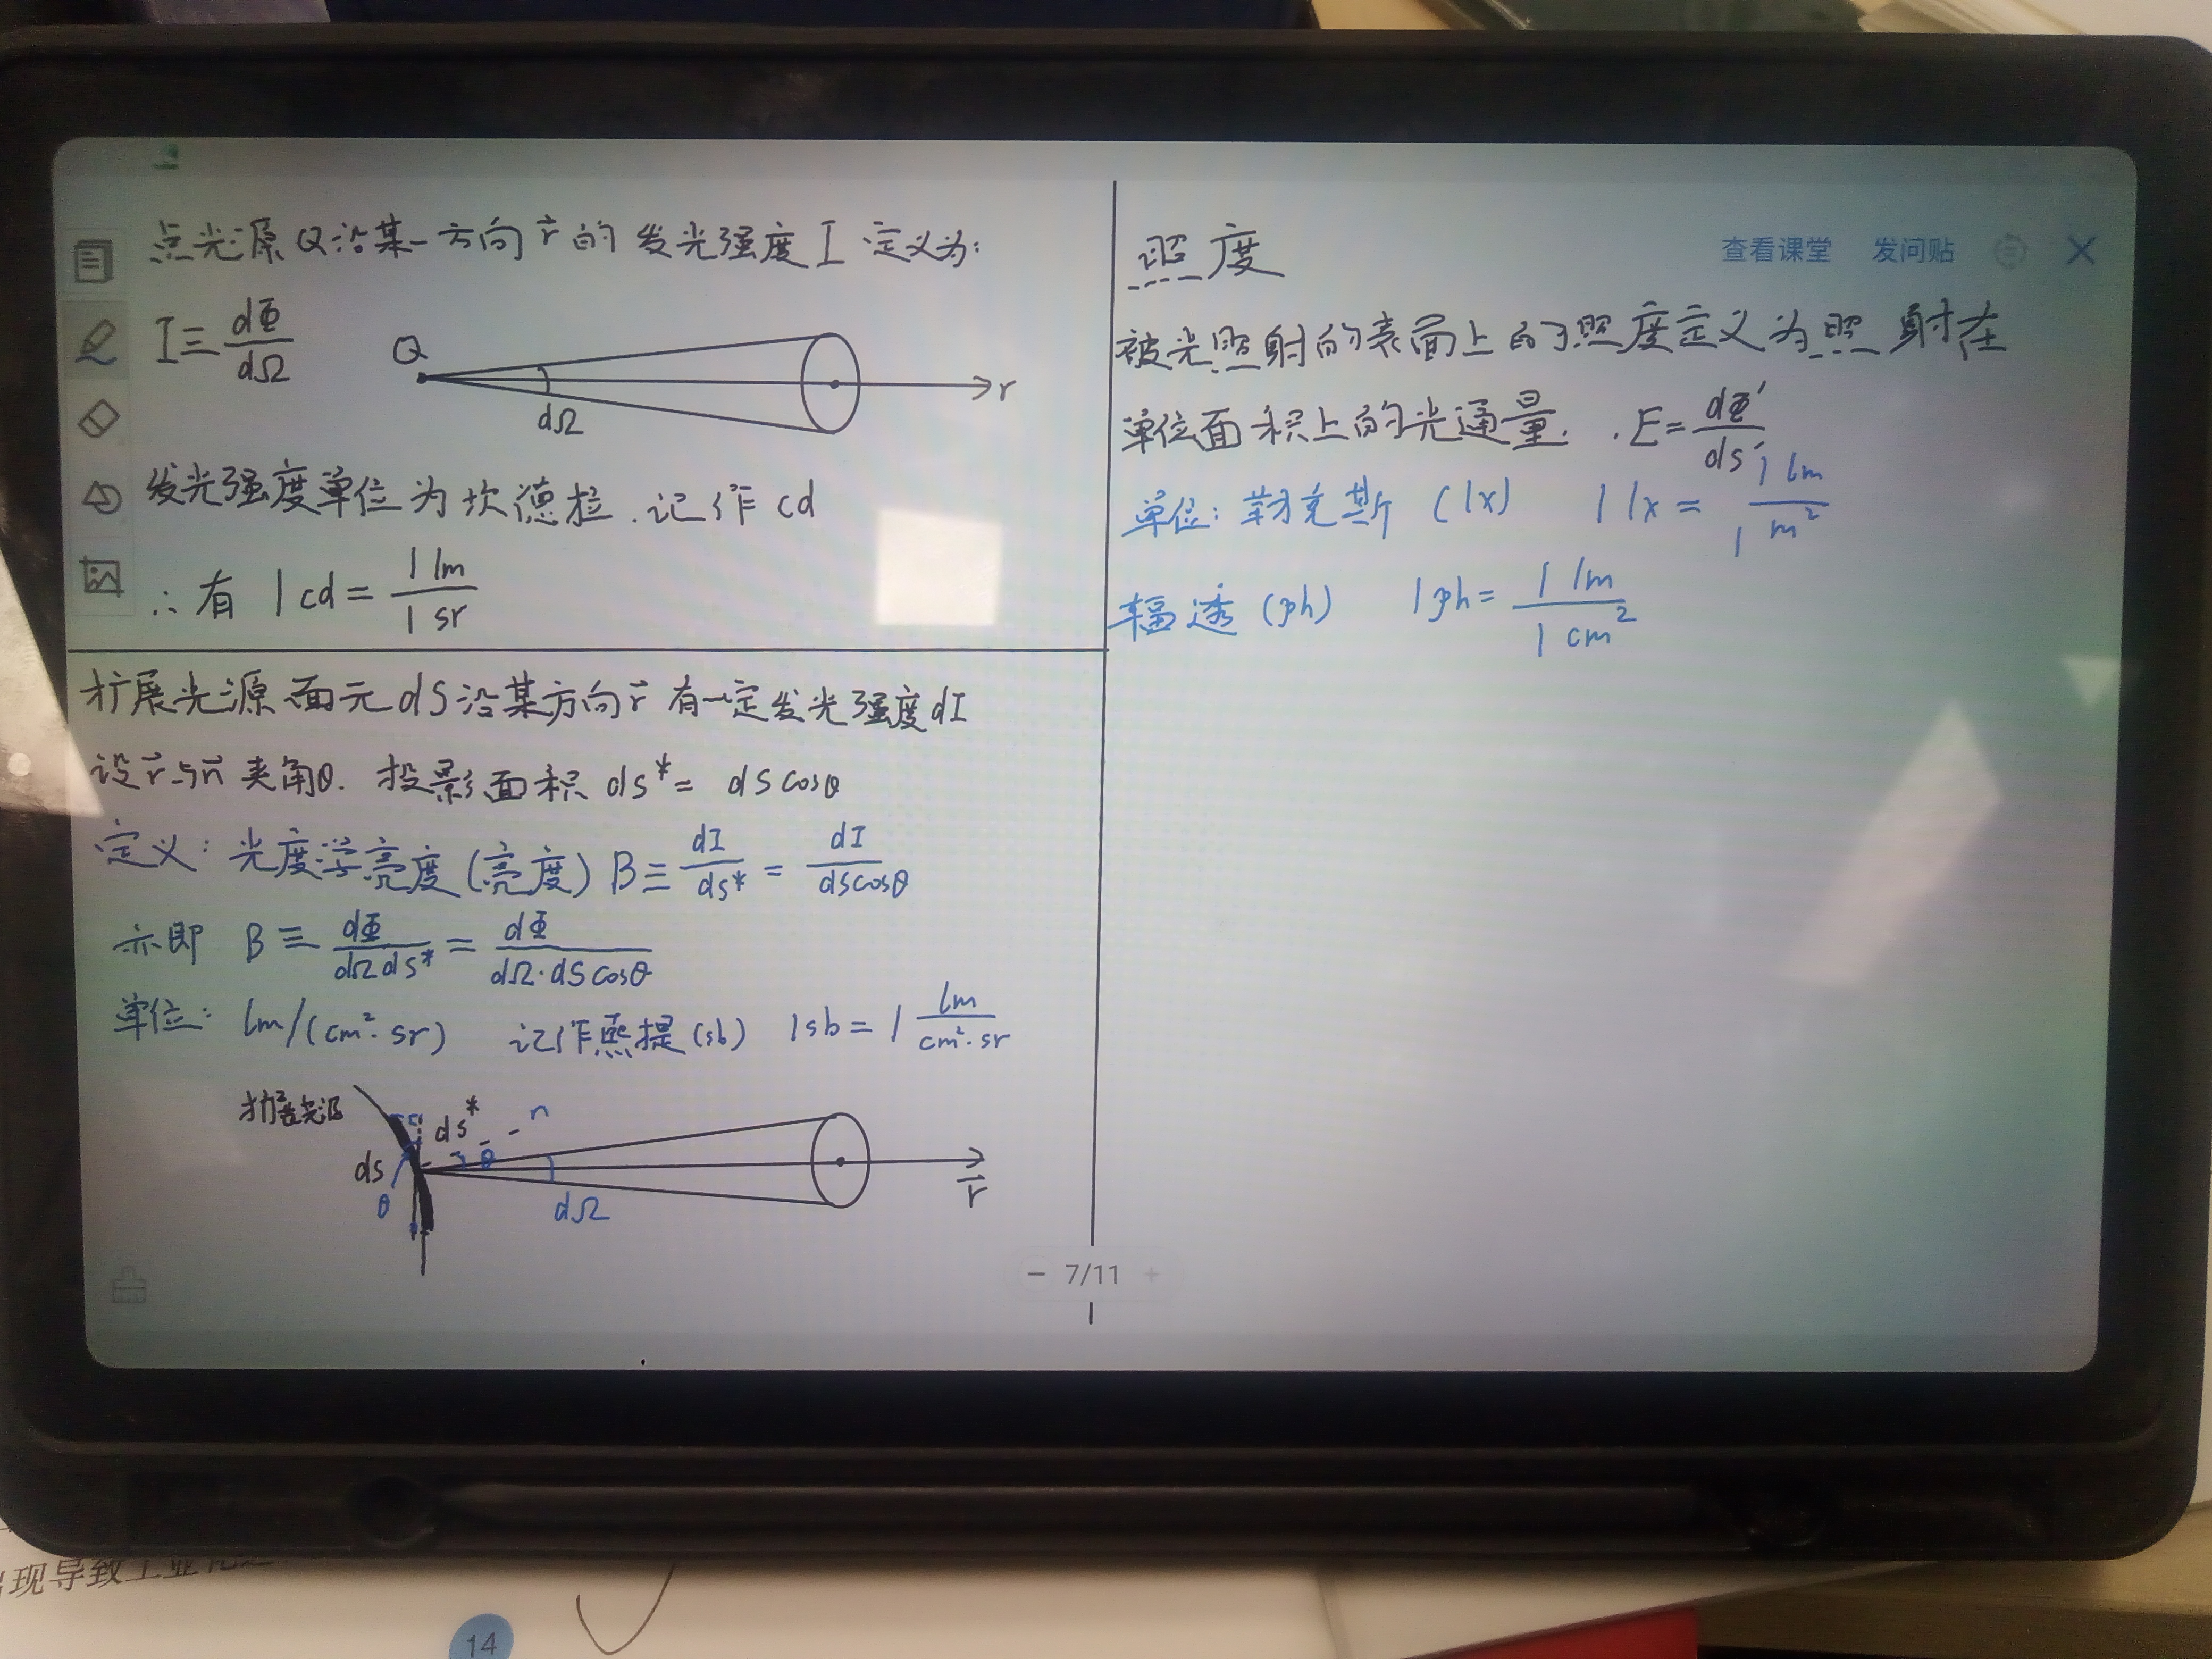 点光源Q沿某一方向r⃗的发光强度I定义为:
I≡dΦ/dΩ
Q
dΩ
r
发光强度单位为坎德拉.记作cd
∴有 1cd=1 lm/1 sr
扩展光源面元dS沿某方向r⃗有一定发光强度dI
设r⃗与n⃗夹角θ. 投影面积 ds*= dscosθ
定义:光度学亮度(亮度) B≡dI/ds*=dI/dscosθ
亦即 B≡dΦ/dΩds*=dΦ/dΩ·dscosθ
单位: lm/(cm²·sr) 记作熙提(sb) 1sb=1 lm/cm²·sr
扩展光源
ds*
n
θ
ds
θ
dΩ
r⃗
照度
查看课堂 发问贴
被光照射的表面上的照度定义为照射在
单位面积上的光通量. E=dΦ'/ds'
单位:勒克斯 (lx) 1 lx=1 lm/1 m²
辐透(ph) 1ph=1 lm/1 cm²
7/11
现导致工业化
14